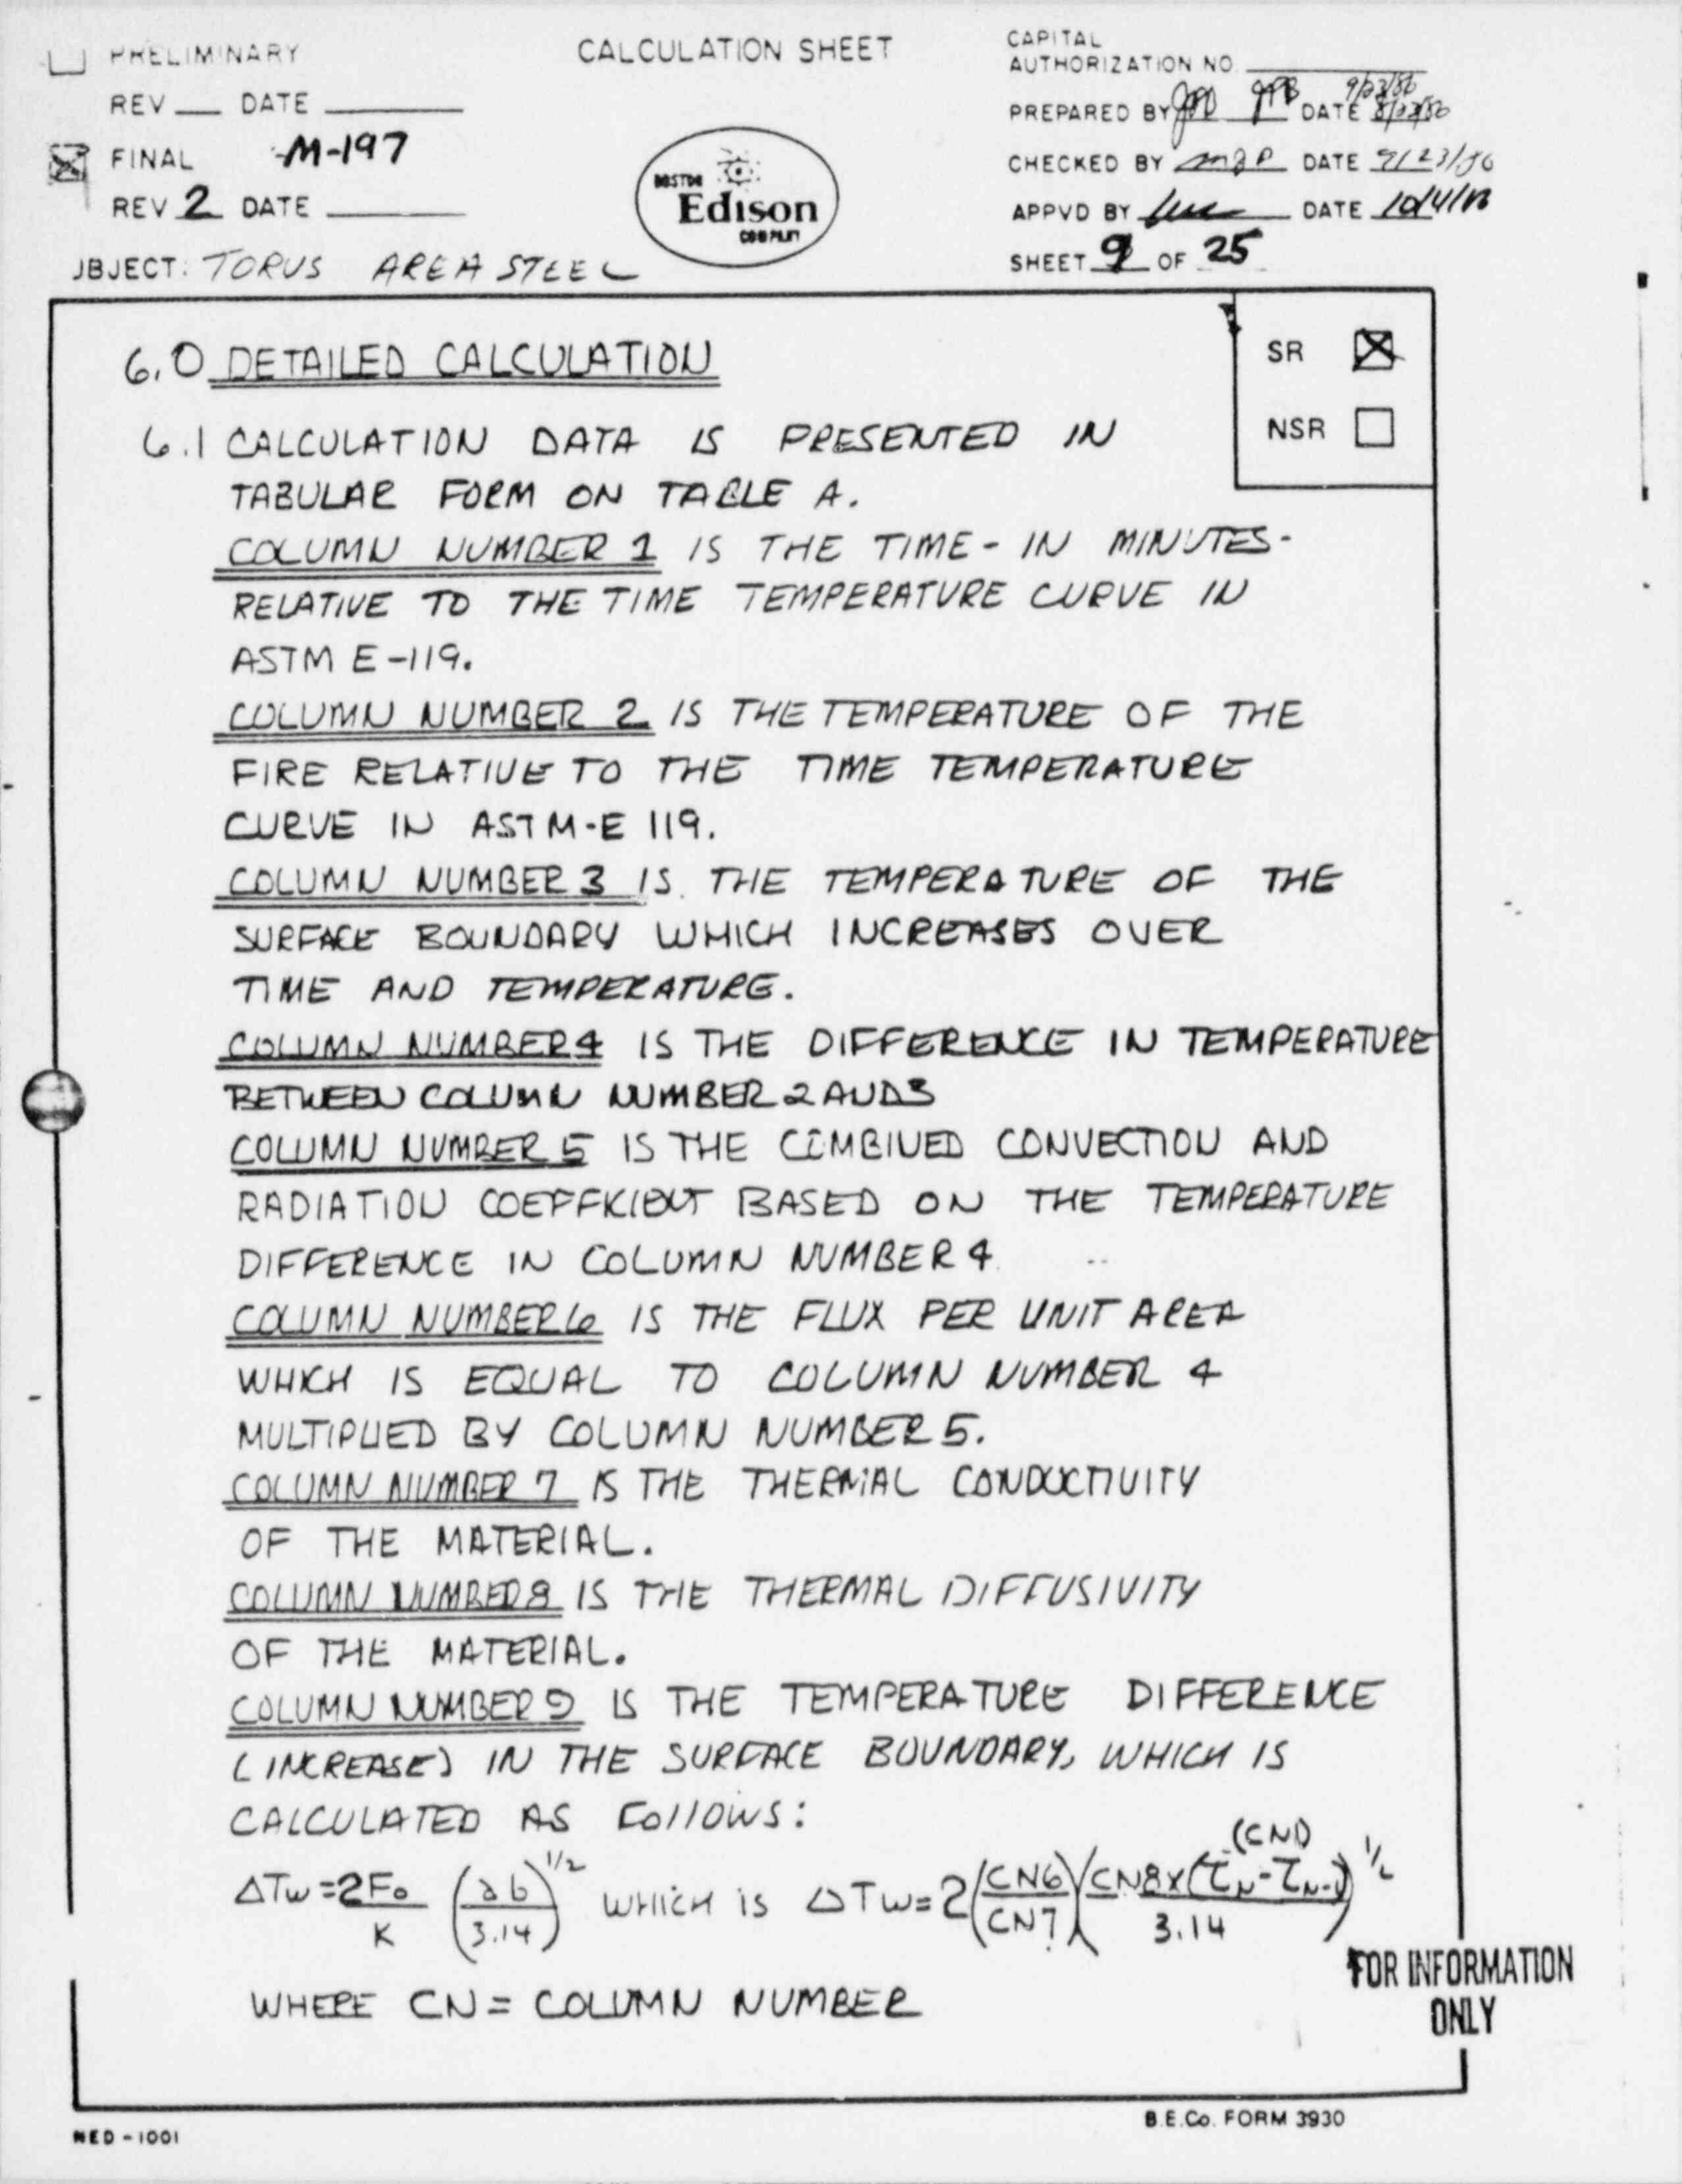 PRELIMINARY
CALCULATION SHEET
CAPITAL
AUTHORIZATION NO.
REV DATE
PREPARED BY DATE 9/23/86
FINAL M-197
BOSTON
Edison
COMPANY
CHECKED BY DATE 9/23/86
REV 2 DATE
APPVD BY DATE
JBJECT: TORUS AREA STEEL
SHEET 9 OF 25
SR
NSR
6.0 DETAILED CALCULATION
6.1 CALCULATION DATA IS PRESENTED IN
TABULAR FORM ON TABLE A.
COLUMN NUMBER 1 IS THE TIME - IN MINUTES -
RELATIVE TO THE TIME TEMPERATURE CURVE IN
ASTM E-119.
COLUMN NUMBER 2 IS THE TEMPERATURE OF THE
FIRE RELATIVE TO THE TIME TEMPERATURE
CURVE IN ASTM-E 119.
COLUMN NUMBER 3 IS THE TEMPERATURE OF THE
SURFACE BOUNDARY WHICH INCREASES OVER
TIME AND TEMPERATURE.
COLUMN NUMBER 4 IS THE DIFFERENCE IN TEMPERATURE
BETWEEN COLUMN NUMBER 2 AND 3
COLUMN NUMBER 5 IS THE COMBINED CONVECTION AND
RADIATION COEFFICIENT BASED ON THE TEMPERATURE
DIFFERENCE IN COLUMN NUMBER 4.
COLUMN NUMBER 6 IS THE FLUX PER UNIT AREA
WHICH IS EQUAL TO COLUMN NUMBER 4
MULTIPLIED BY COLUMN NUMBER 5.
COLUMN NUMBER 7 IS THE THERMAL CONDUCTIVITY
OF THE MATERIAL.
COLUMN NUMBER 8 IS THE THERMAL DIFFUSIVITY
OF THE MATERIAL.
COLUMN NUMBER 9 IS THE TEMPERATURE DIFFERENCE
(INCREASE) IN THE SURFACE BOUNDARY, WHICH IS
CALCULATED AS FOLLOWS:
ΔTw = 2Fo/K (ab/3.14)^1/2 WHICH IS ΔTw = 2(CN6/CN7)(CN8x(τN-τN-1)(CN1)/3.14)^1/2
WHERE CN = COLUMN NUMBER
FOR INFORMATION
ONLY
NED-1001
B.E.Co. FORM 3930